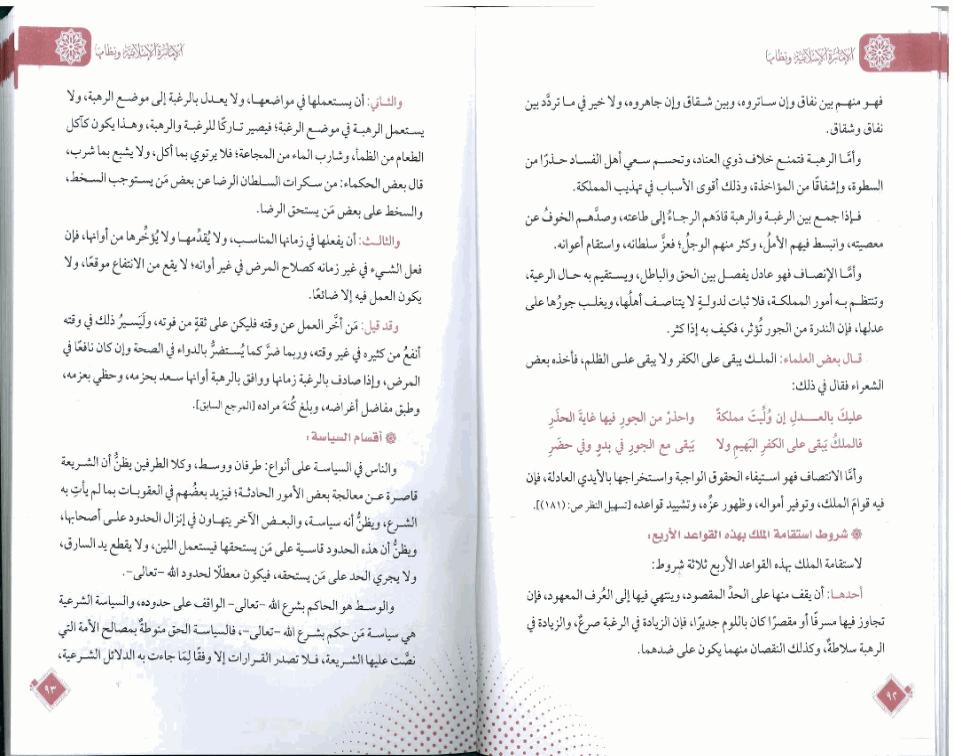 الإمارة الإسلامية ونظامها
فهو منهم بين نفاق وإن ساتروه، وبين شقاق وإن جاهروه، ولا خير في ما تردَّد بين
نفاق وشقاق.
وأمَّا الرهبة فتمنع خلاف ذوي العناد، وتحسم سعي أهل الفساد حذرًا من
السطوة، وإشفاقًا من المؤاخذة، وذلك أقوى الأسباب في تهذيب المملكة.
فإذا جمع بين الرغبة والرهبة قادَهم الرجاءُ إلى طاعته، وصدَّهم الخوفُ عن
معصيته، وانبسط فيهم الأملُ، وكثر منهم الوجلُ؛ فعزَّ سلطانه، واستقام أعوانه.
وأمَّا الإنصاف فهو عادل يفصل بين الحق والباطل، ويستقيم به حال الرعية،
وتنتظم به أمور المملكة، فلا ثبات لدولةٍ لا يتناصف أهلُها، ويغلب جورُها على
عدلها، فإن الندرة من الجور تُؤثر، فكيف به إذا كثر.
قال بعض العلماء: الملك يبقى على الكفر ولا يبقى على الظلم، فأخذه بعض
الشعراء فقال في ذلك:
عليكَ بالعــدلِ إن وُلِّيتَ مملكةً واحذرْ من الجورِ فيها غايةَ الحذَرِ
فالملكُ يَبقى على الكفرِ البَهيمِ ولا يَبقى مع الجورِ في بدوٍ وفي حضَرِ
وأمَّا الانتصاف فهو استيفاء الحقوق الواجبة واستخراجها بالأيدي العادلة، فإن
فيه قوامَ الملك، وتوفير أمواله، وظهور عزِّه، وتشييد قواعده [تسهيل النظر ص: (١٨١)].
شروط استقامة الملك بهذه القواعد الأربع:
لاستقامة الملك بهذه القواعد الأربع ثلاثة شروط:
أحدها: أن يقف منها على الحدِّ المقصود، وينتهي فيها إلى العُرف المعهود، فإن
تجاوز فيها مسرفًا أو مقصرًا كان باللوم جديرًا، فإن الزيادة في الرغبة صرعٌ، والزيادة في
الرهبة سلاطةٌ، وكذلك النقصان منهما يكون على ضدهما.
٩٢
الإمارة الإسلامية ونظامها
والثاني: أن يستعملها في مواضعها، ولا يعدل بالرغبة إلى موضع الرهبة، ولا
يستعمل الرهبة في موضع الرغبة؛ فيصير تاركًا للرغبة والرهبة، وهذا يكون كآكل
الطعام من الظمأ، وشارب الماء من المجاعة؛ فلا يرتوي بما أكل، ولا يشبع بما شرب،
قال بعض الحكماء: من سكرات السلطان الرضا عن بعض مَن يستوجب السخط،
والسخط على بعض مَن يستحق الرضا.
والثالث: أن يفعلها في زمانها المناسب، ولا يُقدِّمها ولا يُؤخِّرها من أوانها، فإن
فعل الشيء في غير زمانه كصلاح المرض في غير أوانه؛ لا يقع من الانتفاع موقعًا، ولا
يكون العمل فيه إلا ضائعًا.
وقد قيل: مَن أخَّر العمل عن وقته فليكن على ثقةٍ من فوته، ولَيَسيرُ ذلك في وقته
أنفعُ من كثيره في غير وقته، وربما ضرَّ كما يُستضرُّ بالدواء في الصحة وإن كان نافعًا في
المرض، وإذا صادف بالرغبة زمانها ووافق بالرهبة أوانها سعد بحزمه، وحظي بعزمه،
وطبق مفاضل أغراضه، وبلغ كُنهَ مراده [المرجع السابق].
أقسام السياسة:
والناس في السياسة على أنواع: طرفان ووسط، وكلا الطرفين يظنُّ أن الشريعة
قاصرة عن معالجة بعض الأمور الحادثة؛ فيزيد بعضُهم في العقوبات بما لم يأتِ به
الشرع، ويظنُّ أنه سياسة، والبعض الآخر يتهاون في إنزال الحدود على أصحابها،
ويظنُّ أن هذه الحدود قاسية على مَن يستحقها فيستعمل اللين، ولا يقطع يد السارق،
ولا يجري الحد على مَن يستحقه، فيكون معطلًا لحدود الله -تعالى-.
والوسط هو الحاكم بشرع الله -تعالى- الواقف على حدوده، والسياسة الشرعية
هي سياسة مَن حكم بشرع الله -تعالى-، فالسياسة الحق منوطةٌ بمصالح الأمة التي
نصَّت عليها الشريعة، فلا تصدر القرارات إلا وفقًا لِمَا جاءت به الدلائل الشرعية،
٩٣